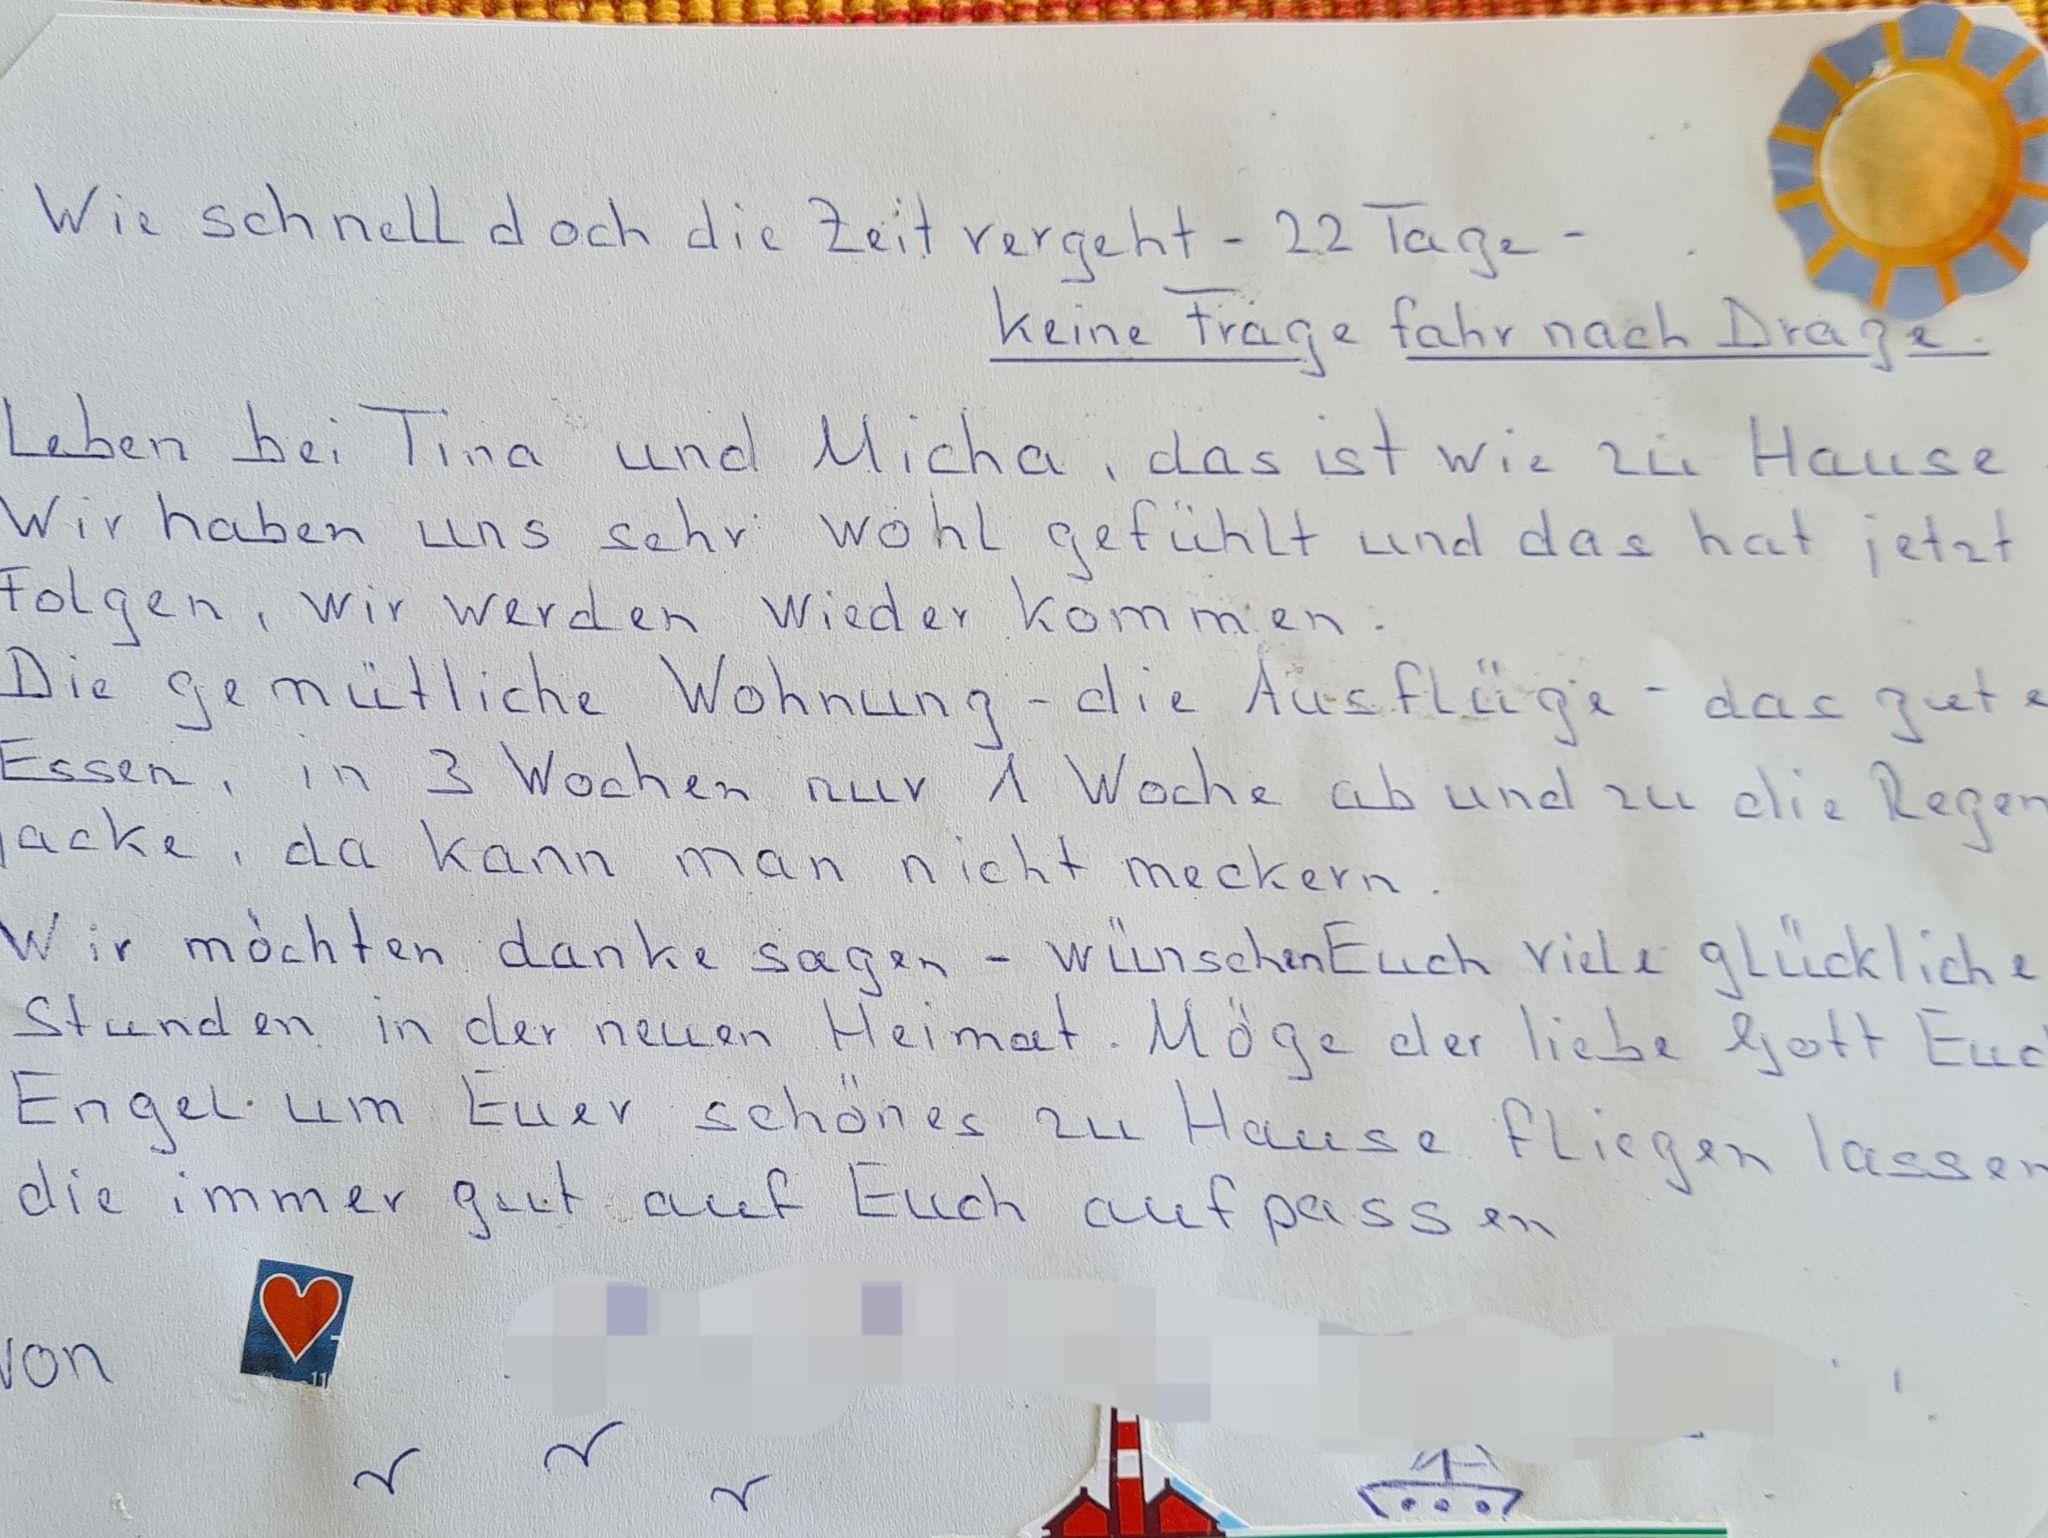 Wie schnell doch die Zeit vergeht - 22 Tage -
keine Frage fahr nach Drage.
Leben bei Tina und Micha, das ist wie zu Hause.
Wir haben uns sehr wohl gefühlt und das hat jetzt
Folgen, wir werden wieder kommen.
Die gemütliche Wohnung - die Ausflüge - das gute
Essen, in 3 Wochen nur 1 Woche ab und zu die Regen
jacke, da kann man nicht meckern.
Wir möchten danke sagen - wünschen Euch viele glückliche
Stunden in der neuen Heimat. Möge der liebe Gott Euc
Engel um Euer schönes zu Hause fliegen lassen
die immer gut auf Euch aufpassen
von